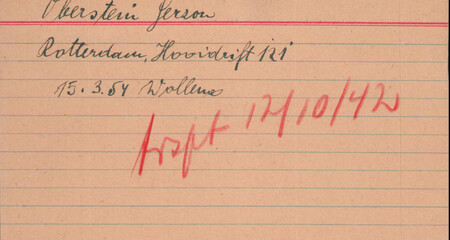 Oberstein Gerson
Rotterdam, Hooidrift 121
15.3.54 Wollena
trspt 12/10/42